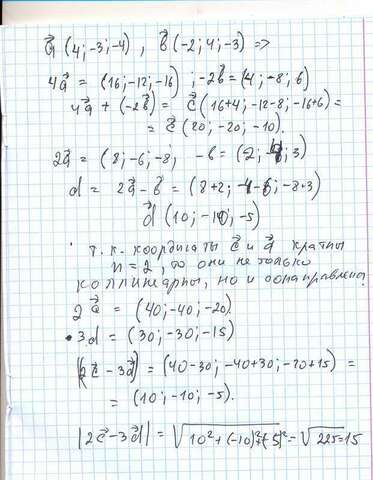 a⃗ (4;-3;-4) , b⃗ (-2;4;-3) =>
4a⃗ = (16;-12;-16) ; -2b⃗ = (4; -8; 6)
4a⃗ + (-2b⃗) = c⃗ (16+4; -12-8; -16+6) =
= c⃗ (20; -20; -10).
2a⃗ = (8; -6; -8; -b = (2; -4; 3)
d = 2a⃗ - b⃗ = (8+2; -4-6; -8+3)
d⃗ (10; -10; -5)
т.к. координаты c⃗ и d⃗ кратны
n=2, то они не только
коллинеарны, но и сонаправлены.
2c⃗ = (40; -40; -20).
3d = (30; -30; -15)
|2c⃗ - 3d⃗| = (40-30; -40+30; -20+15) =
= (10; -10; -5).
|2c⃗-3d⃗| = √10²+(-10)²+(-5)² = √225=15